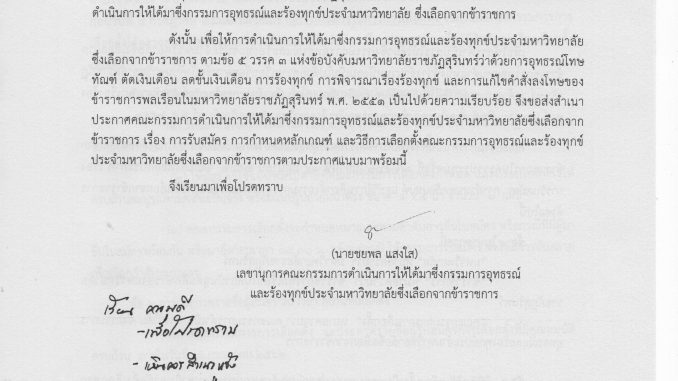 ดำเนินการให้ได้มาซึ่งกรรมการอุทธรณ์และร้องทุกข์ประจำมหาวิทยาลัย ซึ่งเลือกจากข้าราชการ
ดังนั้น เพื่อให้การดำเนินการให้ได้มาซึ่งกรรมการอุทธรณ์และร้องทุกข์ประจำมหาวิทยาลัย
ซึ่งเลือกจากข้าราชการ ตามข้อ ๕ วรรค ๓ แห่งข้อบังคับมหาวิทยาลัยราชภัฏสุรินทร์ว่าด้วยการอุทธรณ์โทษ
ทัณฑ์ ตัดเงินเดือน ลดขั้นเงินเดือน การร้องทุกข์ การพิจารณาเรื่องร้องทุกข์ และการแก้ไขคำสั่งลงโทษของ
ข้าราชการพลเรือนในมหาวิทยาลัยราชภัฏสุรินทร์ พ.ศ. ๒๕๕๑ เป็นไปด้วยความเรียบร้อย จึงขอส่งสำเนา
ประกาศคณะกรรมการดำเนินการให้ได้มาซึ่งกรรมการอุทธรณ์และร้องทุกข์ประจำมหาวิทยาลัยซึ่งเลือกจาก
ข้าราชการ เรื่อง การรับสมัคร การกำหนดหลักเกณฑ์ และวิธีการเลือกตั้งคณะกรรมการอุทธรณ์และร้องทุกข์
ประจำมหาวิทยาลัยซึ่งเลือกจากข้าราชการตามประกาศแนบมาพร้อมนี้
จึงเรียนมาเพื่อโปรดทราบ
(นายชยพล แสงใส)
เลขานุการคณะกรรมการดำเนินการให้ได้มาซึ่งกรรมการอุทธรณ์
และร้องทุกข์ประจำมหาวิทยาลัยซึ่งเลือกจากข้าราชการ
เรียน คณบดี
-เพื่อโปรดทราบ
-เห็นควรสำเนาแจ้ง